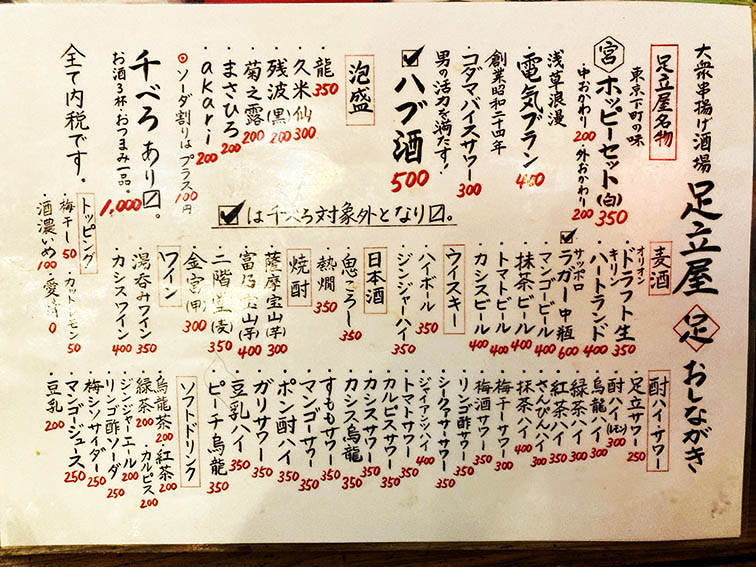 大衆串揚げ酒場
足立屋 足 おしながき
足立屋名物
東京下町の味
宮 ホッピーセット(白) 350
・中おかわり 200 ・外おかわり 200
浅草浪漫
電気ブラン 400
創業昭和二十四年
コダマバイスサワー 300
男の活力を満たす!
☑ハブ酒 500
泡盛
・龍 350
・久米仙 300
・残波(黒) 200
・菊之露 200
・まさひろ 200
・akari 200
◎ソーダ割りは プラス100円
千べろ あり〼。
お酒3杯・おつまみ一品。 1,000
全て内税です。
☑は千べろ対象外となり〼。
麦酒
・オリオンドラフト生 350
・キリンハートランド 400
・☑サッポロラガー中瓶 600
・マンゴービール 400
・抹茶ビール 400
・トマトビール 400
・カシスビール 400
ウイスキー
・ハイボール 350
・ジンジャーハイ 350
日本酒
・鬼ころし 350
・熱燗 350
焼酎
・薩摩宝山(芋) 300
・富乃宝山(芋) 400
・二階堂(麦) 350
・金宮(甲) 300
ワイン
・湯呑みワイン 350
・カシスワイン 400
トッピング
・梅干し 50 ・カットレモン 50
・酒濃いめ 100 ・愛情 0
酎ハイ・サワー
・足立サワー 250
・酎ハイ(レモン) 300
・烏龍ハイ 300
・緑茶ハイ 350
・紅茶ハイ 350
・さんぴんハイ 300
・抹茶ハイ 400
・梅干サワー 300
・梅酒サワー 350
・リンゴ酢サワー 350
・シークァーサーサワー 350
・ジャイアンツハイ 400
・トマトサワー 350
・カルピスサワー 350
・カシスサワー 350
・カシス烏龍 350
・すももサワー 350
・マンゴーサワー 350
・ポン酎ハイ 350
・ガリサワー 350
・豆乳ハイ 350
・ピーチ烏龍 350
ソフトドリンク
・烏龍茶 200 ・紅茶 200
・緑茶 200 ・カルピス 200
・ジンジャーエール 200
・リンゴ酢ソーダ 250
・梅シソサイダー 250
・マンゴージュース 250
・豆乳 200